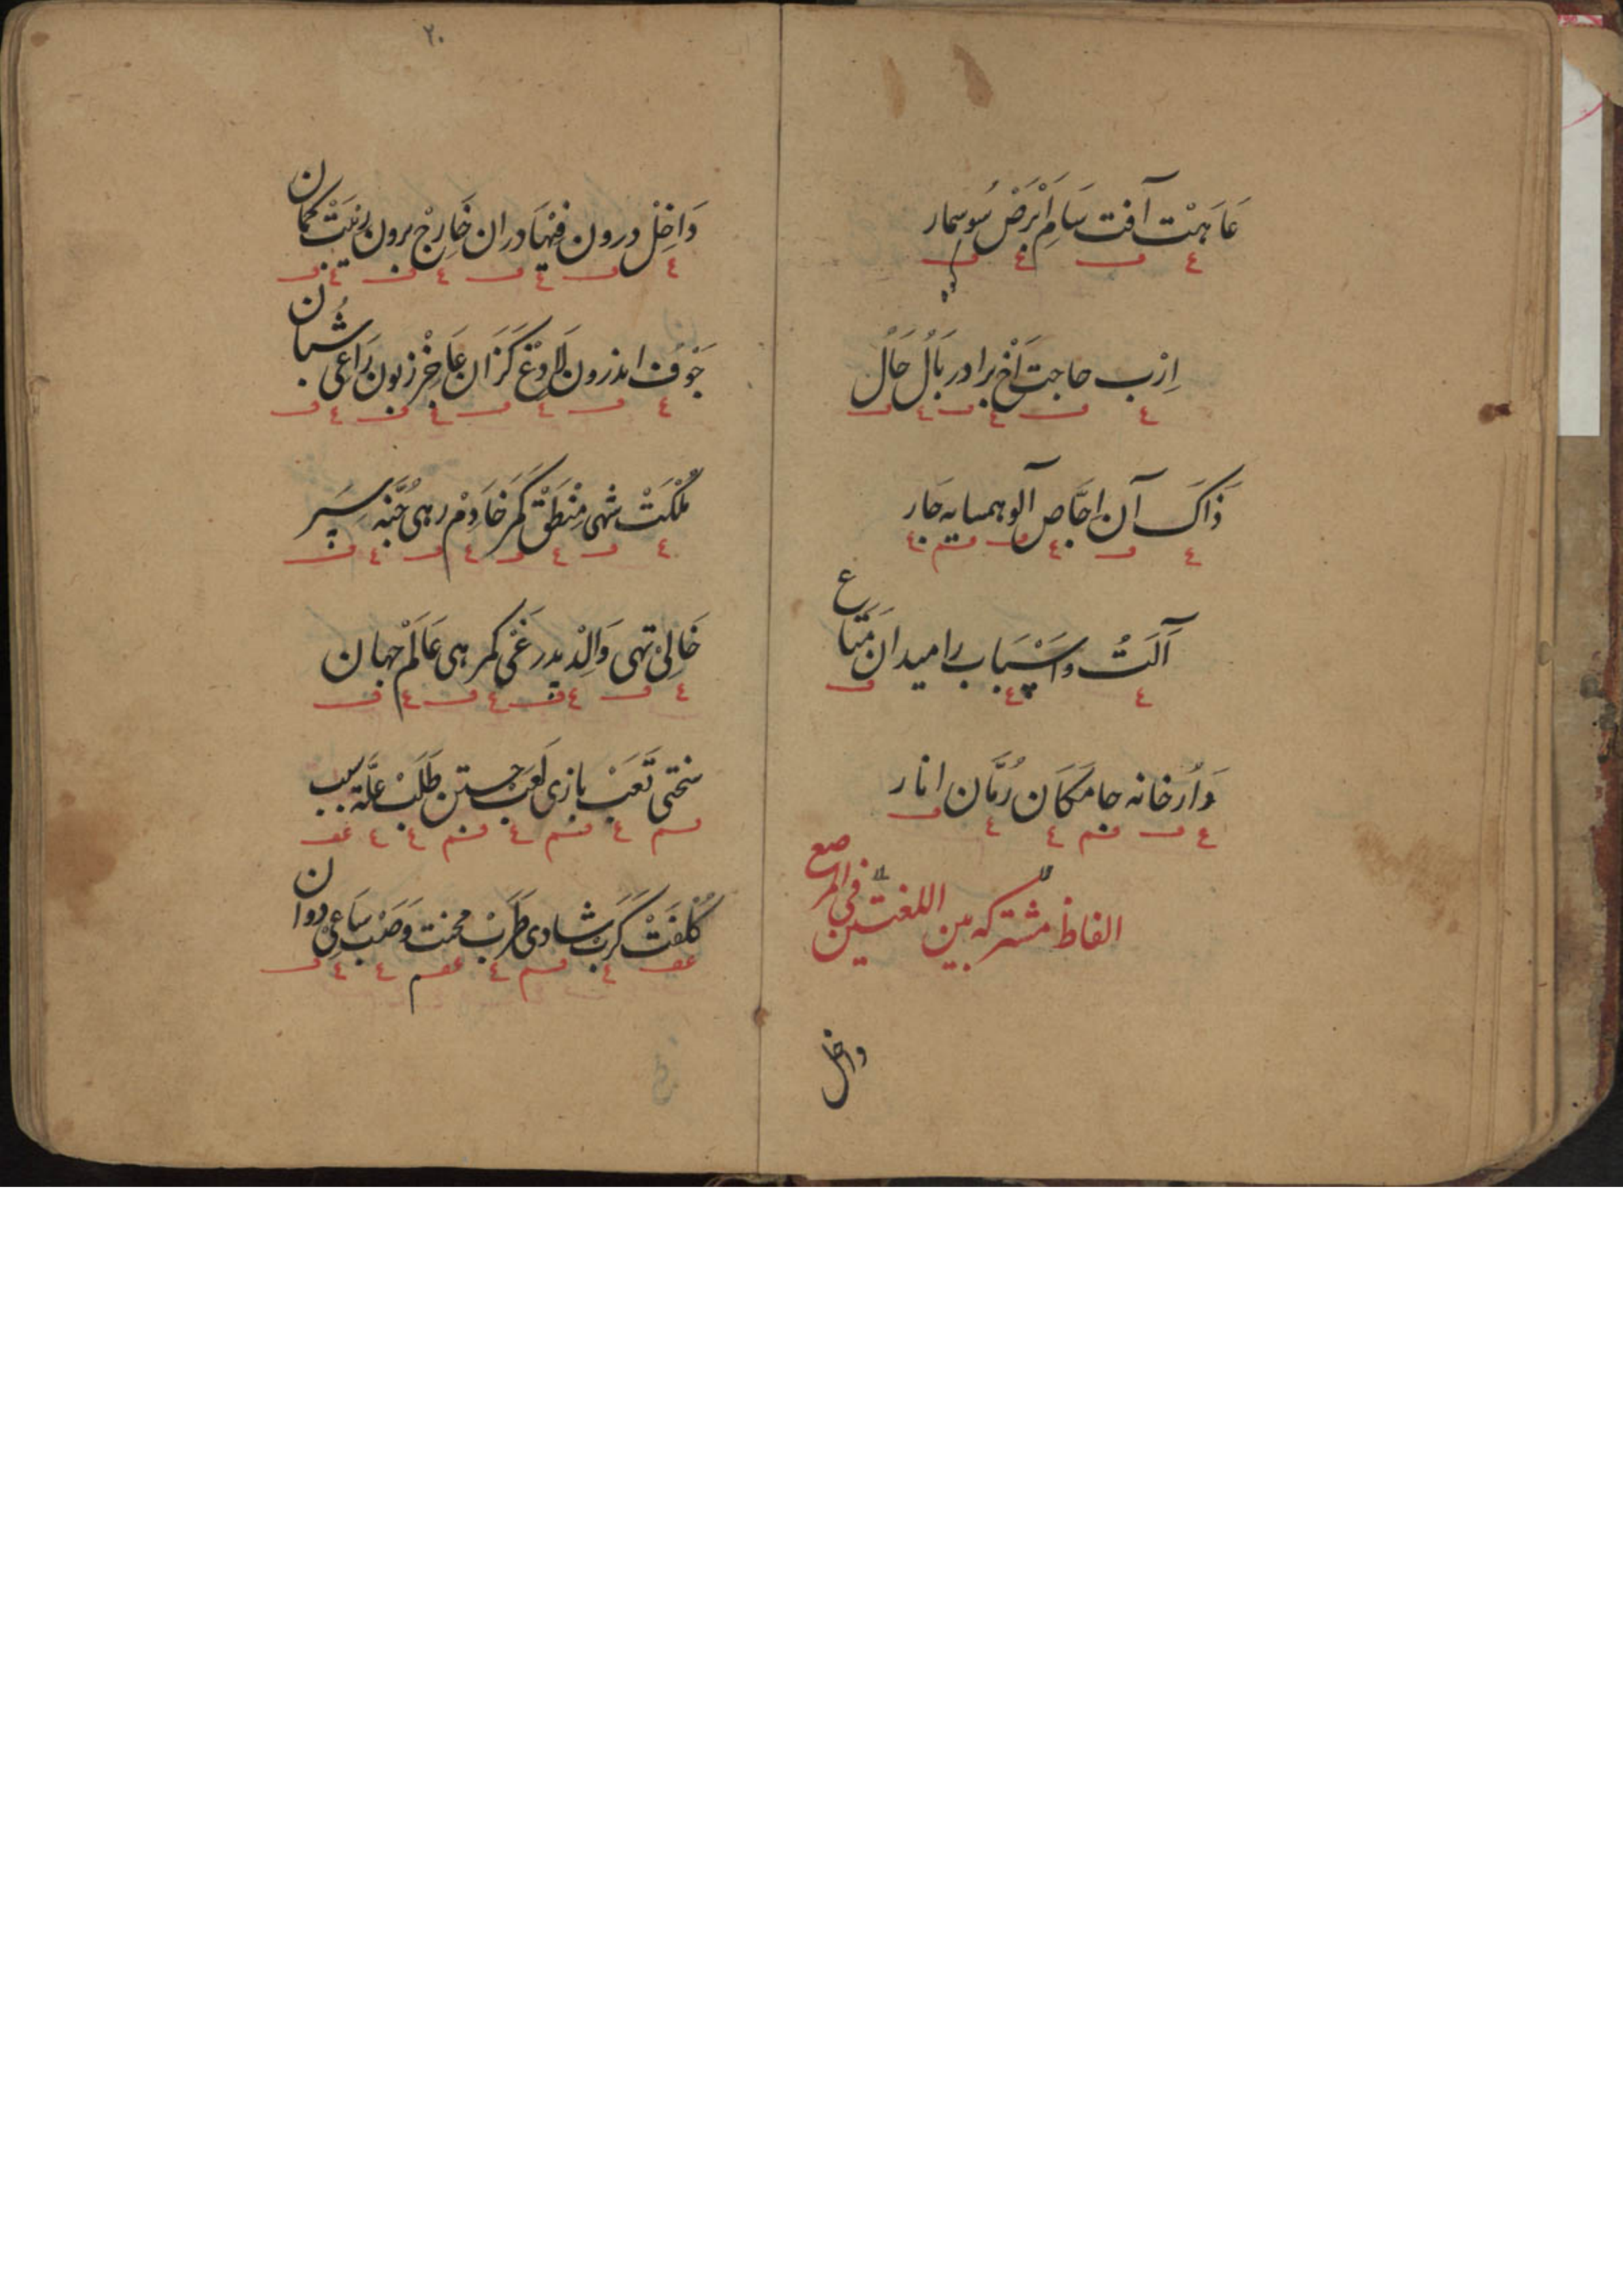 عَاهَتْ آفت سَامِ اَبْرَصْ سُوسمار
اِرْب حاجت اَخْ برادر بَالْ حَالْ
ذَاکَ آن اِجَّاص آلو همسایه جَار
آلَتْ و اَسْبَاب را میدان مَتَاع
دَارْ خانه جا مَکَان رُمَّان انار
الفاظ مشترکه بین اللغتین فی المرصع
داخل
۲۰
دَاخِلْ درون فِیهَا دران خَارِجْ برون رَیْبَتْ کمان
جَوْف اندرون لَادِغْ کَزَان عَاجِزْ زبون رَاعی شُبان
مُلْکَتْ شهی مِنْطَقْ کمر خَادِمْ رهی جُنَّه سپر
خَالِیْ تهی وَالِدْ پدر غَمْی کمرهی عَالَمْ جهان
سختی تَعَبْ بازی لَعِبْ جستن طَلَبْ عِلَّة سبب
کُلْفَتْ کَرَبْ شادی طَرَبْ محنت وَصَبْ سَاعِیْ دوان